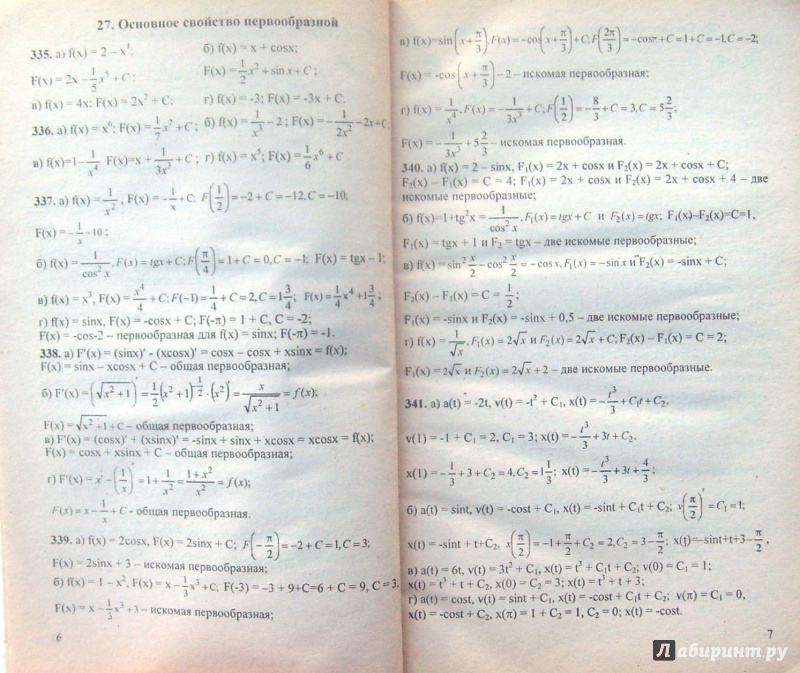 27. Основное свойство первообразной
335. а) f(x) = 2 – x⁴. б) f(x) = x + cosx;
F(x) = 2x - 1/5 x⁵ + C; F(x) = 1/2 x² + sin x + C;
в) f(x) = 4x; F(x) = 2x² + C; г) f(x) = -3; F(x) = -3x + C.
336. а) f(x) = x⁶; F(x) = 1/7 x⁷ + C; б) f(x) = 1/x³ - 2; F(x) = - 1/2x² - 2x + C
в) f(x)=1 - 1/x⁴ F(x)= x + 1/3x³ + C; г) f(x) = x⁵; F(x) = 1/6 x⁶ + C
337. а) f(x) = 1/x², F(x) = - 1/x + C; F(1/2) = -2 + C = -12, C = -10,
F(x) = - 1/x - 10;
б) f(x) = 1/cos² x, F(x) = tgx + C; F(π/4) = 1 + C = 0, C = -1; F(x) = tgx - 1;
в) f(x) = x³, F(x) = x⁴/4 + C; F(-1) = 1/4 + C = 2, C = 1 3/4; F(x) = 1/4 x⁴ + 1 3/4;
г) f(x) = sinx, F(x) = -cosx + C; F(-π) = 1 + C, C = -2;
F(x) = -cos-2 – первообразная для f(x) = sinx; F(-π) = -1.
338. а) F'(x) = (sinx)' - (xcosx)' = cosx – cosx + xsinx = f(x);
F(x) = sinx – xcosx + C – общая первообразная;
б) F'(x) = (√x² + 1)' = 1/2 (x² + 1)^(1/2) · (x²)' = x/√x² + 1 = f(x);
F(x) = √x² + 1 + C – общая первообразная;
в) F'(x) = (cosx)' + (xsinx)' = -sinx + sinx + xcosx = xcosx = f(x);
F(x) = cosx + xsinx + C – общая первообразная;
г) F'(x) = x' - (1/x)' = 1 + 1/x² = 1 + x²/x² = f(x);
F(x) = x - 1/x + C - общая первообразная.
339. а) f(x) = 2cosx, F(x) = 2sinx + C; F(-π/2) = -2 + C = 1, C = 3;
F(x) = 2sinx + 3 – искомая первообразная;
б) f(x) = 1 – x², F(x) = x - 1/3 x³ + C; F(-3) = –3 + 9+C=6 + C = 9, C = 3.
F(x) = x - 1/3 x³ + 3 – искомая первообразная;
6
в) f(x)=sin(x + π/3), F(x) = -co(x + π/3) + C; F(2π/3) = -cosπ + C = 1 + C = -1, C = -2;
F(x) = -cos(x + π/3) - 2 – искомая первообразная;
г) f(x) = 1/x⁴, F(x) = - 1/3x³ + C; F(1/2) = - 8/3 + C = 3, C = 5 2/3;
F(x) = - 1/3x³ + 5 2/3 – искомая первообразная.
340. а) f(x) = 2 – sinx, F₁(x) = 2x + cosx и F₂(x) = 2x + cosx + C;
F₂(x) – F₁(x) = C = 4; F₁(x) = 2x + cosx и F₂(x) = 2x + cosx + 4 – две
искомые первообразные;
б) f(x)=1+tg²x = 1/cos² x, F₁(x) = tgx + C и F₂(x) = tgx; F₁(x)–F₂(x)=C=1,
F₁(x) = tgx + 1 и F₂ = tgx – две искомые первообразные;
в) f(x)=sin² x/2 – cos² x/2 = – cos x, F₁(x) = –sin x и F₂(x) = -sinx + C;
F₂(x) – F₁(x) = C = 1/2;
F₁(x) = -sinx и F₂(x) = -sinx + 0,5 – две искомые первообразные;
г) f(x) = 1/√x, F₁(x) = 2√x и F₂(x) = 2√x + C; F₂(x) – F₁(x) = C = 2;
F₁(x) = 2√x и F₂(x) = 2√x + 2 – две искомые первообразные.
341. а) a(t) = -2t, v(t) = -t² + C₁, x(t) = - t³/3 + C₁t + C₂.
v(1) = -1 + C₁ = 2, C₁ = 3; x(t) = - t³/3 + 3t + C₂.
x(1) = - 1/3 + 3 + C₂ = 4, C₂ = 1 1/3; x(t) = - t³/3 + 3t + 4/3;
б) a(t) = sint, v(t) = -cost + C₁, x(t) = -sint + C₁t + C₂; v(π/2) = C₁ = 1;
x(t) = -sint + t+C₂, x(π/2) = -1 + π/2 + C₂ = 2, C₂ = 3 - π/2; x(t)=–sint+t+3– π/2,
в) a(t) = 6t, v(t) = 3t² + C₁, x(t) = t³ + C₁t + C₂; v(0) = C₁ = 1;
x(t) = t³ + t + C₂, x(0) = C₂ = 3; x(t) = t³ + t + 3;
г) a(t) = cost, v(t) = sint + C₁, x(t) = -cost + C₁t + C₂; v(π) = C₁ = 0,
x(t) = -cost + C₂, x(π) = 1 + C₂ = 1, C₂ = 0; x(t) = -cost.
7
Лабиринт.ру